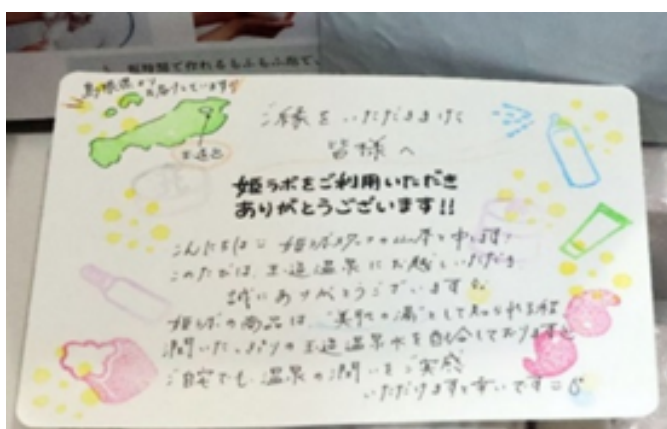 短時間で作れるもふもふ泡で、
島根県から
お届けしています
玉造
ご縁をいただきまして
皆様へ
姫ラボをご利用いただき
ありがとうございます!!
こんにちは 姫ラボスタッフの山本と申します
このたびは、玉造温泉にお越しいただき
誠にありがとうございます
姫ラボの商品は、"美肌の湯"として知られる
潤いたっぷりの玉造温泉水を配合しております
ご自宅でも、温泉の潤いをご実感
いただけますと幸いです